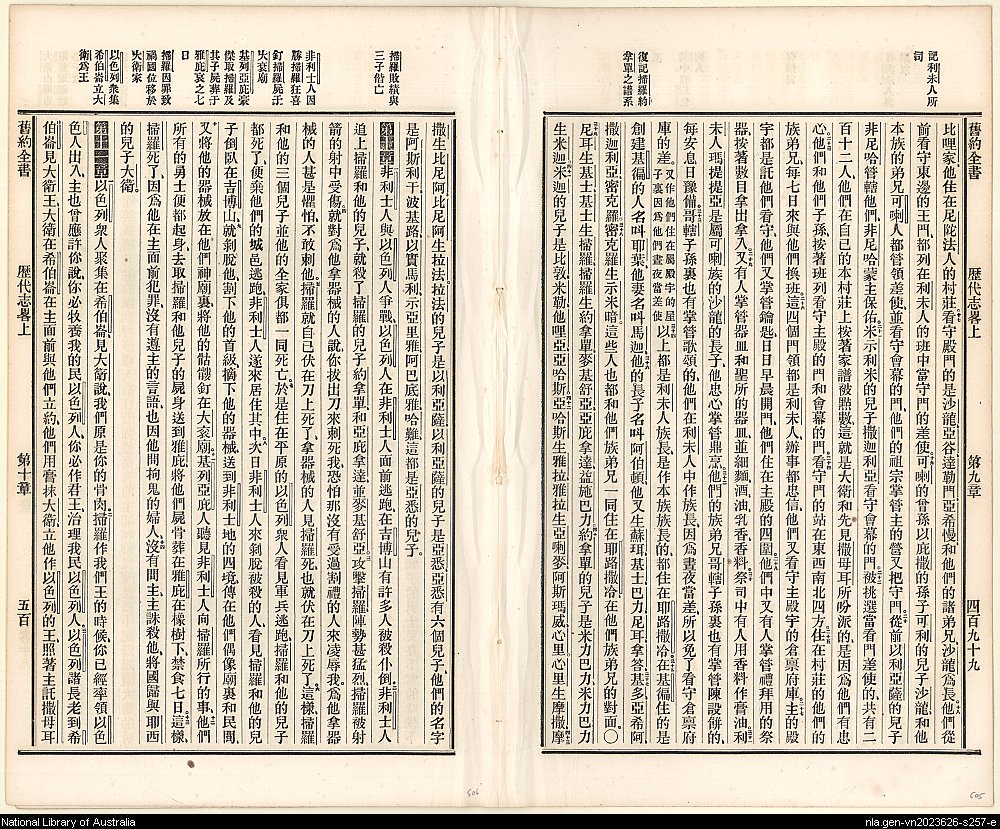 記利未人所
司
復記掃羅約
拿單之譜系
舊約全書
歷代志畧上
第九章
四百九十九
比哩家他住在尼陀法人的村莊看守殿門的是沙龍亞谷達勒門亞希慢和他們的諸弟兄沙龍爲長他們從
前看守東邊的王門都列在利未人的班中當守門的差使可喇的曾孫以庇撒的孫子可利的兒子沙龍和他
本族的弟兄可喇人都管領差使並看守會幕的門他們的祖宗掌管主的營又把守門從前以利亞薩的兒子
非尼哈管轄他們非尼哈蒙主保佑米示利米的兒子撒迦利亞看守會幕的門被挑選當看門差使的共有二
百十二人他們在自己的本村莊上按著家譜被點數這就是大衛和先見撒母耳所吩派的是因爲他們有忠
心他們和他們子孫按著班列看守主殿的門和會幕的門看守門的站在東西南北四方住在村莊的他們的
族弟兄每七日來與他們換班這四個門領都是利未人辦事都忠信他們又看守主殿宇的倉禀府庫主的殿
宇都是託他們看守他們又掌管鑰匙日日早晨開門他們住在主殿的四圍他們中又有人掌管禮拜用的祭
器按著數目拿出拿入又有人掌管器皿和聖所的器皿並細麵酒油乳香香料祭司中有人用香料作膏油利
未人瑪提提亞是屬可喇族的沙龍的長子他忠心掌管鼎烹他們的族弟兄哥轄子孫裏也有掌管陳設餅的
每安息日豫備哥轄子孫裏也有掌管歌頌的他們在利未人中作族長因爲晝夜當差所以免了看守倉禀府
庫的差又作他們住在屬殿宇的屋子裏因爲他們晝夜當差使以上都是利未人族長是作本族族長的都住在耶路撒冷在基徧住的是
創建基徧的人名叫耶葉他妻名叫馬迦他的長子名叫阿伯頓他又生蘇珥基士巴力尼珥拿答基多亞希阿
撒迦利亞密克羅密克羅生示米暗這些人也都和他們族弟兄一同住在耶路撒冷在他們族弟兄的對面〇
尼珥生基士基士生掃羅掃羅生約拿單麥基舒亞亞庇拿達益施巴力約拿單的兒子是米力巴力米力巴力
生米迦米迦的兒子是比敦米勒他哩亞亞哈斯亞哈斯生雅拉雅拉生亞喇麥阿斯瑪威心里心里生摩撒摩
掃羅敗績與
三子偕亡
非利士人因
勝掃羅狂喜
釘掃羅屍于
大袞廟
基列亞庇豪
傑取掃羅及
其子屍葬于
雅庇哀之七
日
掃羅因罪致
禍國位移於
大衛家
以色列衆集
希伯崙立大
衛爲王
撒生比尼阿比尼阿生拉法拉法的兒子是以利亞薩以利亞薩的兒子是亞悉亞悉有六個兒子他們的名字
是阿斯利干波基路以實馬利示亞里雅阿巴底雅哈難這都是亞悉的兒子
第十章非利士人與以色列人爭戰以色列人在非利士人面前逃跑在吉博山有許多人被殺仆倒非利士人
追上掃羅和他的兒子就殺了掃羅的兒子約拿單和亞庇拿達並麥基舒亞攻擊掃羅陣勢甚猛烈掃羅被射
箭的射中受傷就對爲他拿器械的人說你拔出刀來刺死我恐怕那沒有受過割禮的人來凌辱我爲他拿器
械的人甚是懼怕不敢刺他掃羅就自己伏在刀上死了拿器械的人見掃羅死也就伏在刀上死了這樣掃羅
和他的三個兒子並他的全家俱都一同死亡於是住在平原的以色列衆人看見軍兵逃跑掃羅和他的兒子
都死了便棄他們的城邑逃跑非利士人遂來居住其中次日非利士人來剝脫被殺的人看見掃羅和他的兒
子倒臥在吉博山就剝脫他割下他的首級摘下他的器械送到非利士地的四境傳在他們偶像廟裏和民間
又將他的器械放在他們神廟裏將他的骷髏釘在大袞廟基列亞庇人聽見非利士人向掃羅所行的事他們
所有的勇士便都起身去取掃羅和他兒子的屍身送到雅庇將他們屍骨葬在雅庇在橡樹下禁食七日這樣
掃羅死了因爲他在主面前犯罪沒有遵主的言語也因他問拘鬼的婦人沒有問主主誅殺他將國歸與耶西
的兒子大衛
第十一章以色列衆人聚集在希伯崙見大衛說我們原是你的骨肉掃羅作我們王的時候你已經率領以色
色人出入主也曾應許你說你必牧養我的民以色列人你必作君王治理我民以色列人以色列諸長老到希
伯崙見大衛王大衛在希伯崙在主面前與他們立約他們用膏抹大衛立他作以色列的王照著主託撒母耳
舊約全書
歷代志畧上
第十章
五百
506
505
National Library of Australia
nla.gen-vn2023626-s257-e